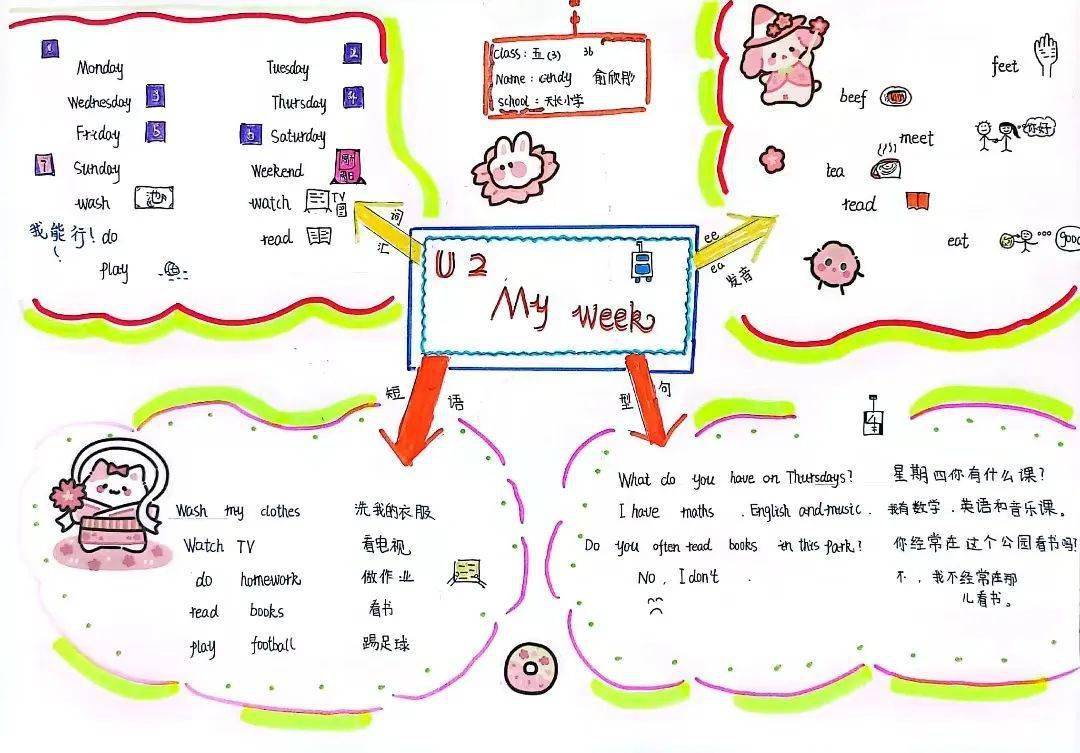 Class：五(3) 36
Name：Cindy 俞欣彤
School：天长小学
U2
My week
词汇
1 Monday
2 Tuesday
Wednesday 3
Thursday 4
Friday 5
5 Saturday
7 Sunday
Weekend
wash
watch TV
我能行！ do
read
play
ee
ea
发音
feet
beef
meet 你好
tea
read
eat good
短语
Wash my clothes 洗我的衣服
Watch TV 看电视
do homework 做作业
read books 看书
play football 踢足球
句型
What do you have on Thursdays? 星期四你有什么课?
I have maths , English and music . 我有数学、英语和音乐课。
Do you often read books in this park? 你经常在这个公园看书吗?
No , I don't . 不，我不经常在那
儿看书。